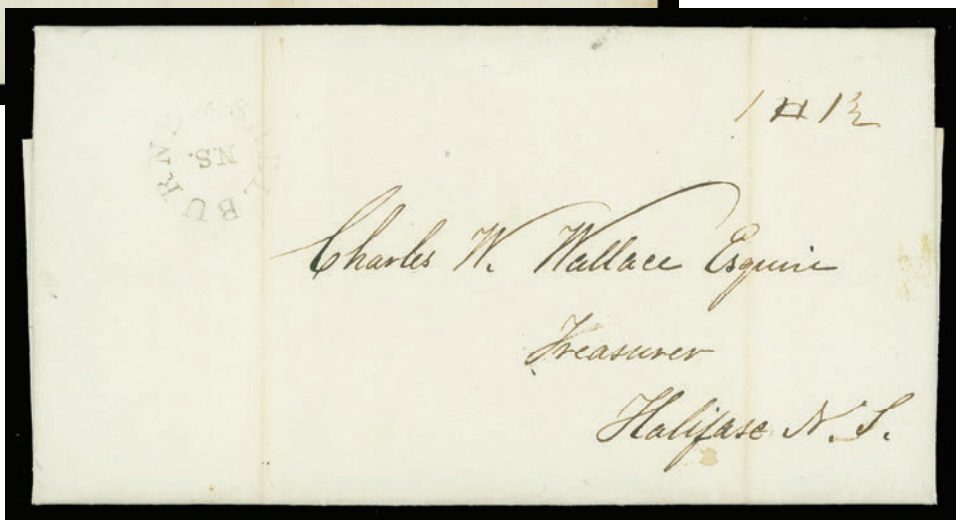 SHELBURNE
N.S.
1 H 1½
Charles W. Wallace Esquire
Treasurer
Halifax N. S.